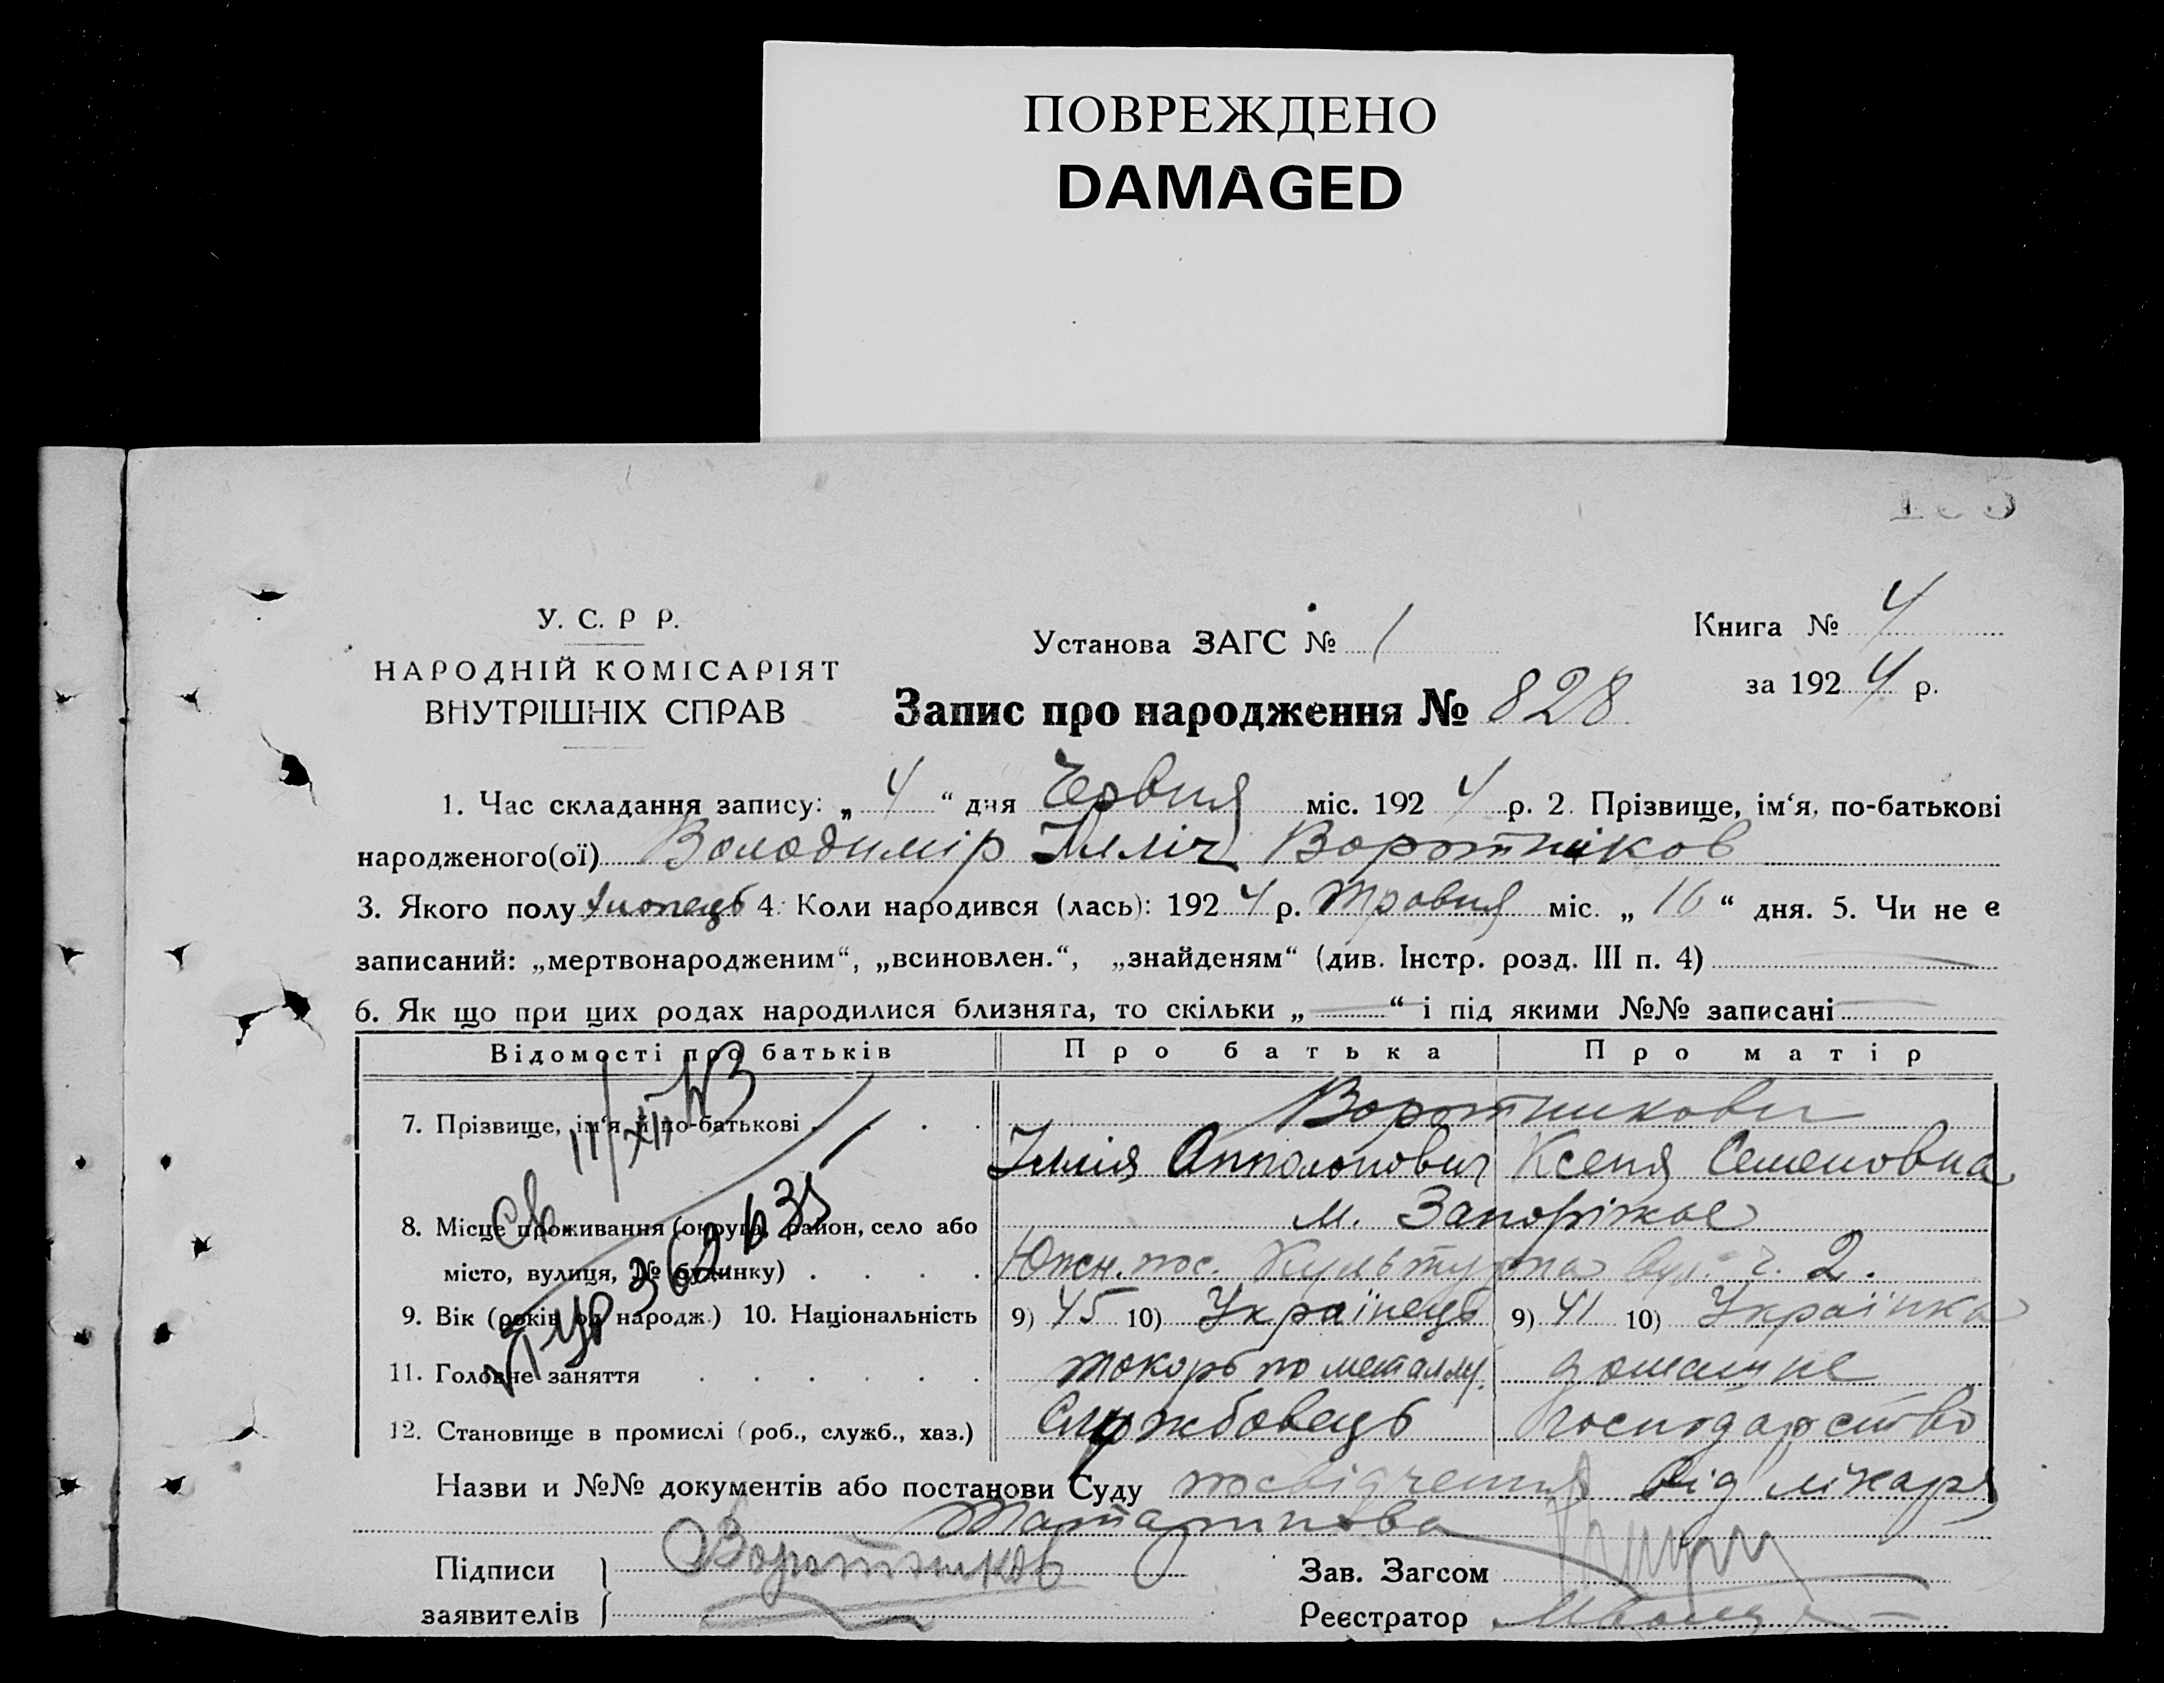 ПОВРЕЖДЕНО
DAMAGED
У. С. Р Р.
НАРОДНІЙ КОМІСАРІЯТ
ВНУТРІШНІХ СПРАВ
Установа ЗАГС № 1
Книга № 4
за 192 4 р.
Запис про народження № 828
1. Час складання запису: „ 4 “ дня Червня міс. 192 4 р. 2. Прізвище, ім‘я, по-батькові
народженого(ої) Володимір Ілліч Воротніков
3. Якого полу хлопець 4. Коли народився (лась): 192 4 р. Травня міс. „ 16 “ дня. 5. Чи не є
записаний: „мертвонародженим“, „всиновлен.“, „знайденям“ (див. Інстр. розд. III п. 4)
6. Як що при цих родах народилися близнята, то скільки „ — “ і під якими №№ записані —
Відомості про батьків Про батька Про матір
7. Прізвище, ім‘я й по-батькові Воротникови
Ілля Апполонович Ксеня Семеновна
8. Місце проживання (округа, район, село або м. Запоріжье
місто, вулиця, № будинку) Южн. пос. Культурна вул. ч. 2.
9. Вік (років од народж.) 10. Національність 9) 45 10) Українець 9) 41 10) Українка
11. Головне заняття токорь по металлу. домашне
12. Становище в промислі (роб., служб., хаз.) Службовець господарство
Назви и №№ документів або постанови Суду посвідчення від лікаря
Татаринова
Підписи Воротников Зав. Загсом
заявителів Реєстратор